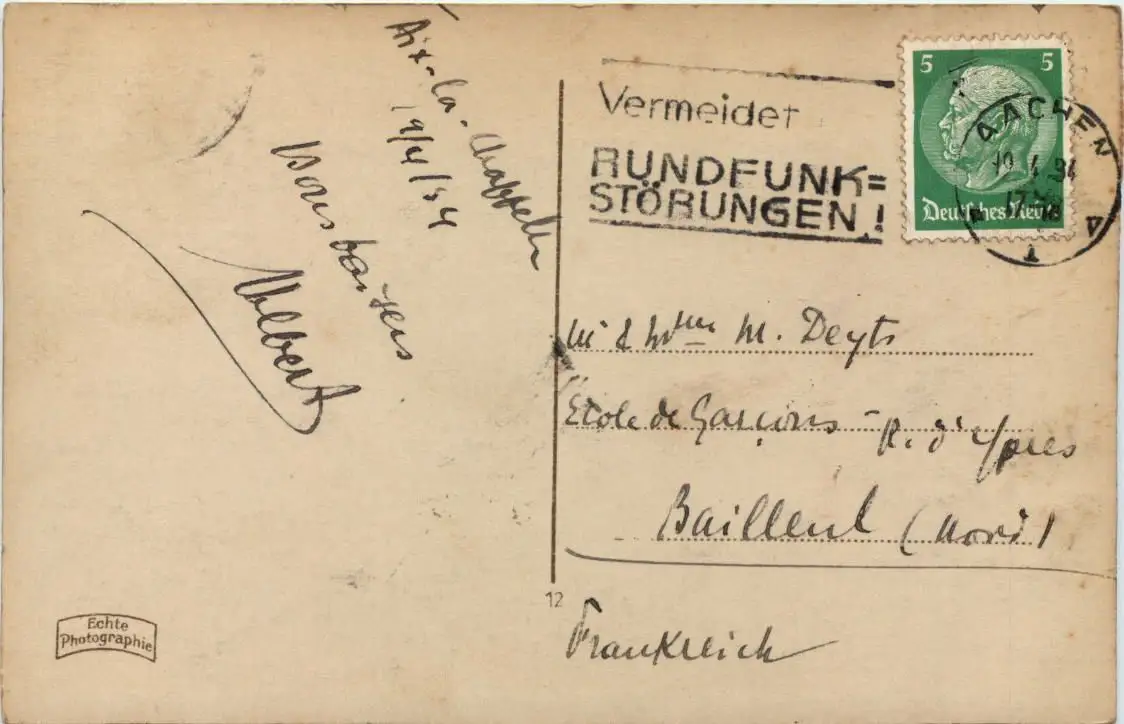 Aix-la-Chappelle
19/4/34
Bons baisers
Albert
Vermeidet
RUNDFUNK=
STÖRUNGEN!
5 5
Deutsches Reich
AACHEN
19.4.34
M & Mme M. Deyts
Ecole de Garçons - R. d'Ypres
Bailleul (Nord)
Frankreich
12
Echte
Photographie